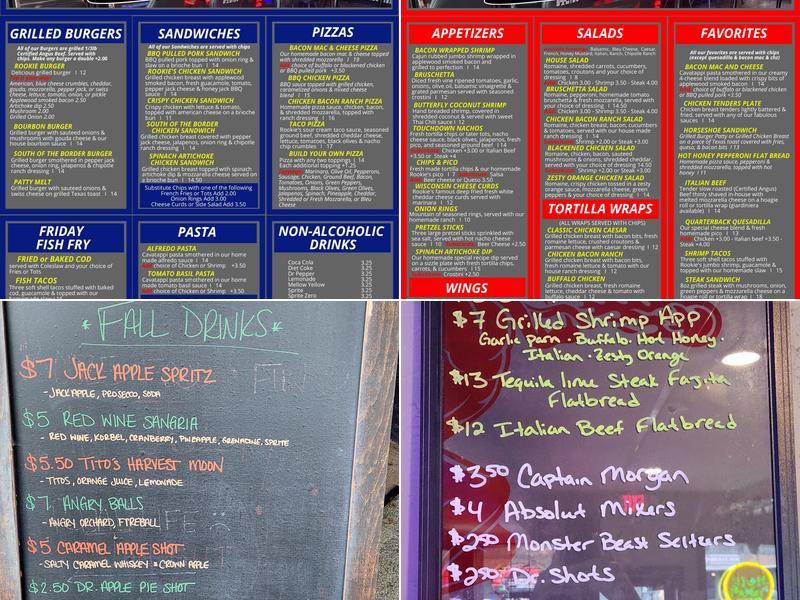 GRILLED BURGERS
All of our Burgers are grilled 1/3lb
Certified Angus Beef. Served with
chips. Make any burger a double +2.00
ROOKIE BURGER
Delicious grilled burger | 12
American cheese crumbles, cheddar,
gouda, mozzarella, pepper jack, or swiss
cheese, lettuce, tomato, onion, or pickle
Applewood smoked bacon 2.50
Artichoke dip 2.50
Mushroom 2.00
Grilled Onion 2.00
BOURBON BURGER
Grilled burger with sauteed onions &
mushrooms with swiss cheese & our
house bourbon sauce | 14
SOUTH OF THE BORDER BURGER
Grilled burger smothered in pepper jack
cheese, onion ring, jalapeños & chipotle
ranch | 14
PATTY MELT
Grilled burger with sauteed onions &
swiss cheese on grilled Texas toast | 14
SANDWICHES
All of our Sandwiches are served with chips
BBQ PULLED PORK SANDWICH
BBQ pulled pork topped with onion ring &
slaw on a brioche bun | 14
ROOKIE'S CHICKEN SANDWICH
Grilled chicken breast with applewood
smoked bacon & guacamole, tomato,
pepper jack cheese & honey jack BBQ
sauce | 14
CRISPY CHICKEN SANDWICH
Crispy chicken with lettuce & tomato,
topped with american cheese on a brioche
bun | 14
SOUTH OF THE BORDER
CHICKEN SANDWICH
Grilled chicken breast covered with pepper
jack cheese, jalapenos, onion ring & chipotle
ranch | 14
SPINACH ARTICHOKE
CHICKEN SANDWICH
Grilled chicken breast topped with spinach
artichoke dip & mozzarella cheese served on
a brioche bun | 14.50
Substitute Chips with one of the following
French Fries or Tots Add 2.00
Onion Rings Add 3.00
Cheese Curds or Side Salad Add 3.50
PIZZAS
BACON MAC & CHEESE PIZZA
Our homemade bacon mac & cheese topped
with shredded mozzarella | 19
choice of buffalo or blackened chicken
or BBQ pulled pork +3.50
BBQ CHICKEN PIZZA
BBQ sauce topped with grilled chicken,
caramelized onions & mixed cheese
blend | 15
CHICKEN BACON RANCH PIZZA
Homemade pizza sauce, chicken, bacon,
& shredded mozzarella, topped with
ranch | 16
TACO PIZZA
Rookie's sour cream taco sauce, seasoned
ground beef, shredded cheddar cheese,
lettuce, tomatoes, black olives & nacho
chip crumbles | 17
BUILD YOUR OWN PIZZA
Pizza with any two toppings | 14
Each additional topping +1.25
Marinara, Olive Oil, Pepperoni,
Sausage, Chicken, Ground Beef, Bacon,
Tomatoes, Onions, Green Peppers,
Mushrooms, Black Olives, Green Olives,
Jalapenos, Spinach, Pineapple, Cheddar,
or Shredded or Fresh Mozzarella, or Bleu
Cheese
FRIDAY
FISH FRY
FRIED or BAKED COD
served with Coleslaw and your choice of
Fries or Tots
FISH TACOS
Three soft shell tacos stuffed with baked
cod, guacamole & topped with our
PASTA
ALFREDO PASTA
Cavatappi pasta smothered in our home
made alfredo sauce | 14
choice of Chicken or Shrimp +3.50
TOMATO BASIL PASTA
Cavatappi pasta smothered in our home
made tomato basil sauce | 14
choice of Chicken or Shrimp +3.50
NON-ALCOHOLIC
DRINKS
Coca Cola 3.25
Diet Coke 3.25
Dr Pepper 3.25
Lemonade 3.25
Mellow Yellow 3.25
Sprite 3.25
Sprite Zero 3.25
APPETIZERS
BACON WRAPPED SHRIMP
Cajun rubbed jumbo shrimp wrapped in
applewood smoked bacon and
grilled to perfection | 14
BRUSCHETTA
Diced fresh vine ripened tomatoes, garlic,
onions, olive oil, balsamic vinaigrette &
grated parmesan served with seasoned
crostini | 12
BUTTERFLY COCONUT SHRIMP
Hand breaded shrimp, covered in
shredded coconut & served with sweet
Thai Chili sauce | 12
TOUCHDOWN NACHOS
Fresh tortilla chips or tater tots, nacho
cheese sauce, black olives, jalapenos, fresh
pico, and seasoned ground beef | 14
Chicken +3.00 or Italian Beef
+3.50 or Steak +4
CHIPS & PICO
Fresh made tortilla chips & our homemade
Rookie's pico | 7 Salsa
Beef cheese or Queso 3.50
WISCONSIN CHEESE CURDS
Rookie's famous deep fried fresh white
cheddar cheese curds with
marinara | 12
ONION RINGS
Mountain of seasoned rings, served with our
homemade ranch | 10
PRETZEL STICKS
Three large pretzel sticks sprinkled with
sea salt, served with hot nacho cheese
sauce | 10 Beer Cheese +2.50
SPINACH ARTICHOKE DIP
Our homemade special recipe dip served
on a sizzle plate with fresh tortilla chips,
carrots, & cucumbers | 15
Crostini +2.50
WINGS
SALADS
Balsamic, Bleu Cheese, Caesar,
French, Honey Mustard, Italian, Ranch, Chipotle Ranch
HOUSE SALAD
Romaine, shredded carrots, cucumbers,
tomatoes, croutons and your choice of
dressing | 8
Chicken 3.00 - Shrimp 3.50 - Steak 4.00
BRUSCHETTA SALAD
Romaine, pepperoni, homemade tomato
bruschetta & fresh mozzarella, served with
your choice of dressing | 14.50
Chicken 3.00 - Shrimp 3.50 - Steak 4.00
CHICKEN BACON RANCH SALAD
Romaine, chicken breast, bacon, cucumber
& tomatoes, served with our house made
ranch | 14
Shrimp +2.00 or Steak +3.00
BLACKENED CHICKEN SALAD
Romaine, blackened chicken, sauteed
mushrooms & onions, shredded cheddar,
served with your choice of dressing 14.50
Shrimp +2.00 or Steak +3.00
ZESTY ORANGE CHICKEN SALAD
Romaine, crispy chicken tossed in a zesty
orange sauce, mozzarella cheese, green
peppers & your choice of dressing | 14
TORTILLA WRAPS
(ALL WRAPS SERVED WITH CHIPS)
CLASSIC CHICKEN CAESAR
Grilled chicken breast with bacon bits, fresh
romaine lettuce, crushed croutons &
parmesan cheese with caesar dressing | 12
CHICKEN BACON RANCH
Grilled chicken breast with bacon bits, fresh
romaine lettuce & tomato with our
house ranch dressing | 12
BUFFALO CHICKEN
Grilled chicken breast, fresh romaine
lettuce, cheddar cheese & tomato with
buffalo sauce | 12
FAVORITES
All our favorites are served with chips
(except quesadilla & bacon mac & chz)
BACON MAC AND CHEESE
Cavatappi pasta smothered in our creamy
4-cheese blend loaded with crispy bits of
applewood smoked bacon | 14
choice of buffalo or blackened chicken
or BBQ pulled pork +3.50
CHICKEN TENDERS PLATE
Chicken breast tenders lightly battered &
fried, served with any of our fabulous
sauces | 13
HORSESHOE SANDWICH
Grilled Burger Patty or Grilled Chicken Breast
on a piece of Texas toast covered with fries,
queso, & bacon bits | 13
HOT HONEY PEPPERONI FLAT BREAD
Homemade pizza sauce, pepperoni
& shredded mozzarella, topped with hot
honey | 11
ITALIAN BEEF
Tender slow roasted (Certified Angus)
Beef thinly shaved in-house with
melted mozzarella cheese on a hoagie
roll or tortilla wrap (giardiniera
available) | 14
QUARTERBACK QUESADILLA
Our special cheese blend & fresh
homemade pico | 13
Chicken +3.00 - Italian beef +3.50 -
Steak +4.00
SHRIMP TACOS
Three soft shell tacos stuffed with
Rookie's jumbo shrimp, guacamole &
topped with our homemade slaw | 15
STEAK SANDWICH
8oz grilled steak with mushrooms, onion,
green peppers & mozzarella cheese on a
hoagie roll or tortilla wrap | 18
*FALL DRINKS*
$7 JACK APPLE SPRITZ
- JACK APPLE, PROSECCO, SODA
$5 RED WINE SANGRIA
- RED WINE, KORBEL, CRANBERRY, PINEAPPLE, GRENADINE, SPRITE
$5.50 TITO'S HARVEST MOON
- TITOS, ORANGE JUICE, LEMONADE
$7 ANGRY BALLS
- ANGRY ORCHARD, FIREBALL
$5 CARAMEL APPLE SHOT
- SALTY CARAMEL WHISKEY & CROWN APPLE
$2.50 DR. APPLE PIE SHOT
$7 Grilled Shrimp App
Garlic parm · Buffalo · Hot Honey ·
Italian · Zesty Orange
$13 Tequila lime Steak Fajita
Flatbread
$12 Italian Beef Flatbread
$3.50 Captain Morgan
$4 Absolut Mixers
$2.50 Monster Beast Seltzers
$2.50 Dr. Shots